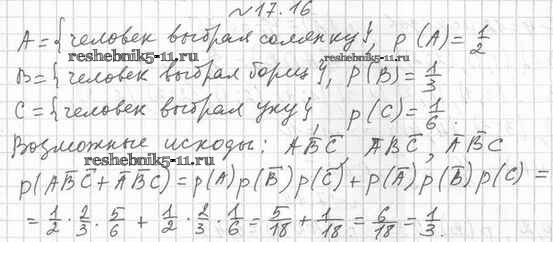 №17.16
A = {человек выбрал солянку}, p(A) = 1/2
reshebnik5-11.ru
B = {человек выбрал борщ}, p(B) = 1/3
C = {человек выбрал уху}, p(C) = 1/6.
Возможные исходы: AB̅C̅, A̅BC̅, A̅B̅C
reshebnik5-11.ru
p(AB̅C̅ + A̅B̅C) = p(A)p(B̅)p(C̅) + p(A̅)p(B̅)p(C) =
= 1/2 · 2/3 · 5/6 + 1/2 · 2/3 · 1/6 = 5/18 + 1/18 = 6/18 = 1/3.